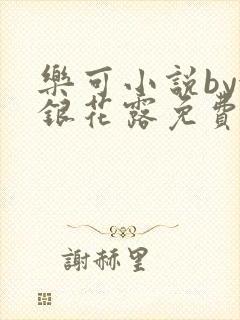 樂可小說by
銀花露免費
謝赫里